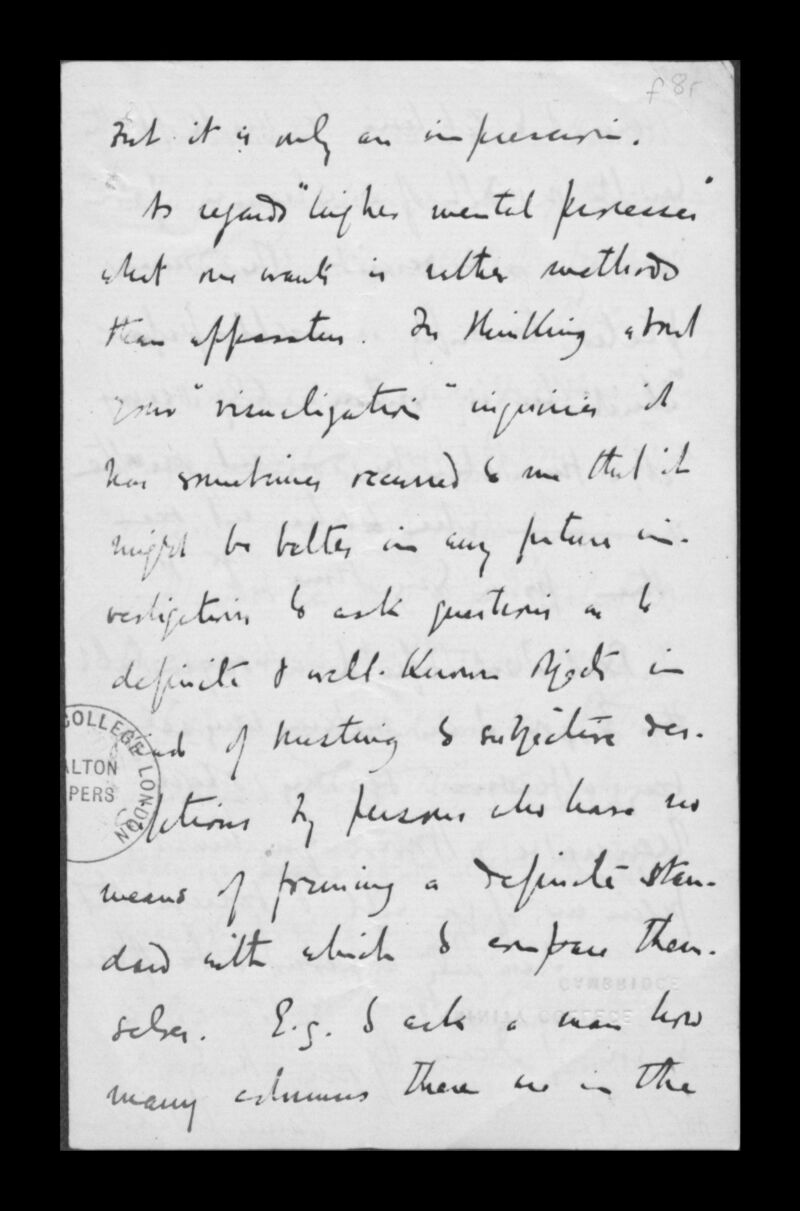 f 8r
but it is only an impression.
As regards "higher mental processes"
what one wants is rather methods
than apparatus. In thinking about
your "visualization" inquiries it
has sometimes occurred to me that it
might be better in any future in-
vestigations to ask questions as to
definite & well-known objects in
stead of trusting to subjective des-
criptions by persons who have no
means of forming a definite stan-
dard with which to compare them-
selves. E.g. to ask a man how
many columns there are in the
COLLEGE LONDON
ALTON
PERS
CAMBRIDGE
TRINITY COLLEGE